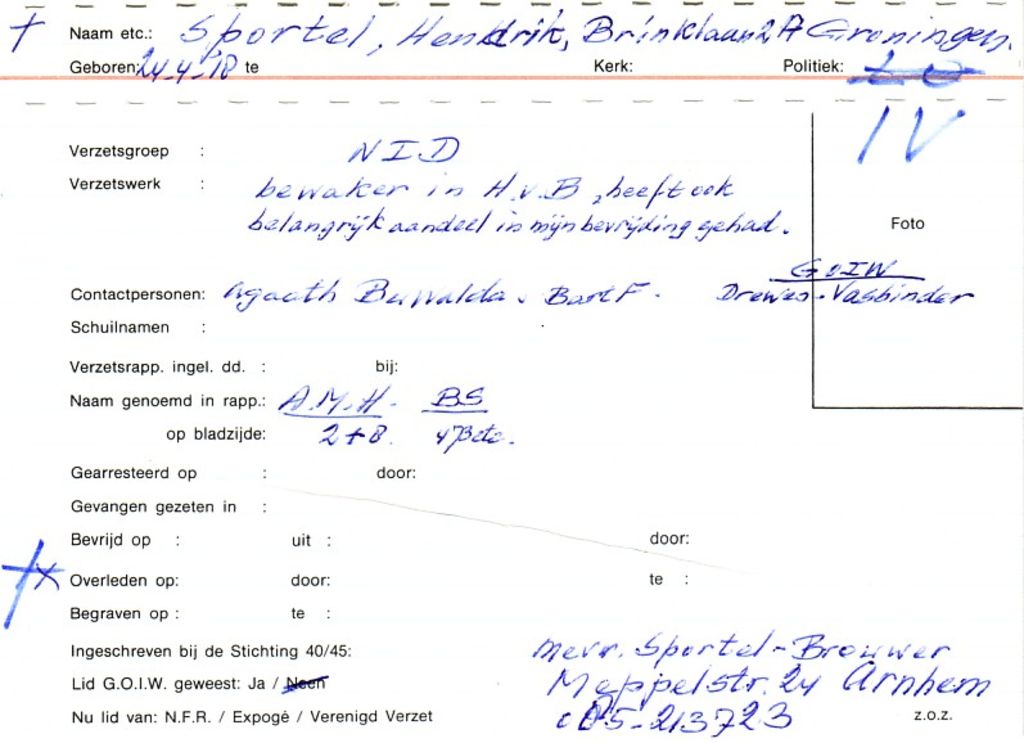 † Naam etc.: Sportel, Hendrik, Brinklaan 2A Groningen.
Geboren: 24-4-'18 te Kerk: Politiek:
IV
Verzetsgroep : N.I.D
Verzetswerk : bewaker in H.v.B, heeft ook
belangrijk aandeel in mijn bevrijding gehad.
Foto
GOIW
Contactpersonen: Agaath Buwalda. Bart F. Drewes-Vasbinder
Schuilnamen :
Verzetsrapp. ingel. dd. : bij:
Naam genoemd in rapp.: A.M.H. BS
op bladzijde: 2+8.
Gearresteerd op : door:
Gevangen gezeten in :
Bevrijd op : uit : door:
† x Overleden op: door: te :
Begraven op : te :
Ingeschreven bij de Stichting 40/45: mevr. Sportel-Brouwer
Lid G.O.I.W. geweest: Ja / Neen Meppelstr. 24 Arnhem
Nu lid van: N.F.R. / Expogé / Verenigd Verzet 085-213723 z.o.z.